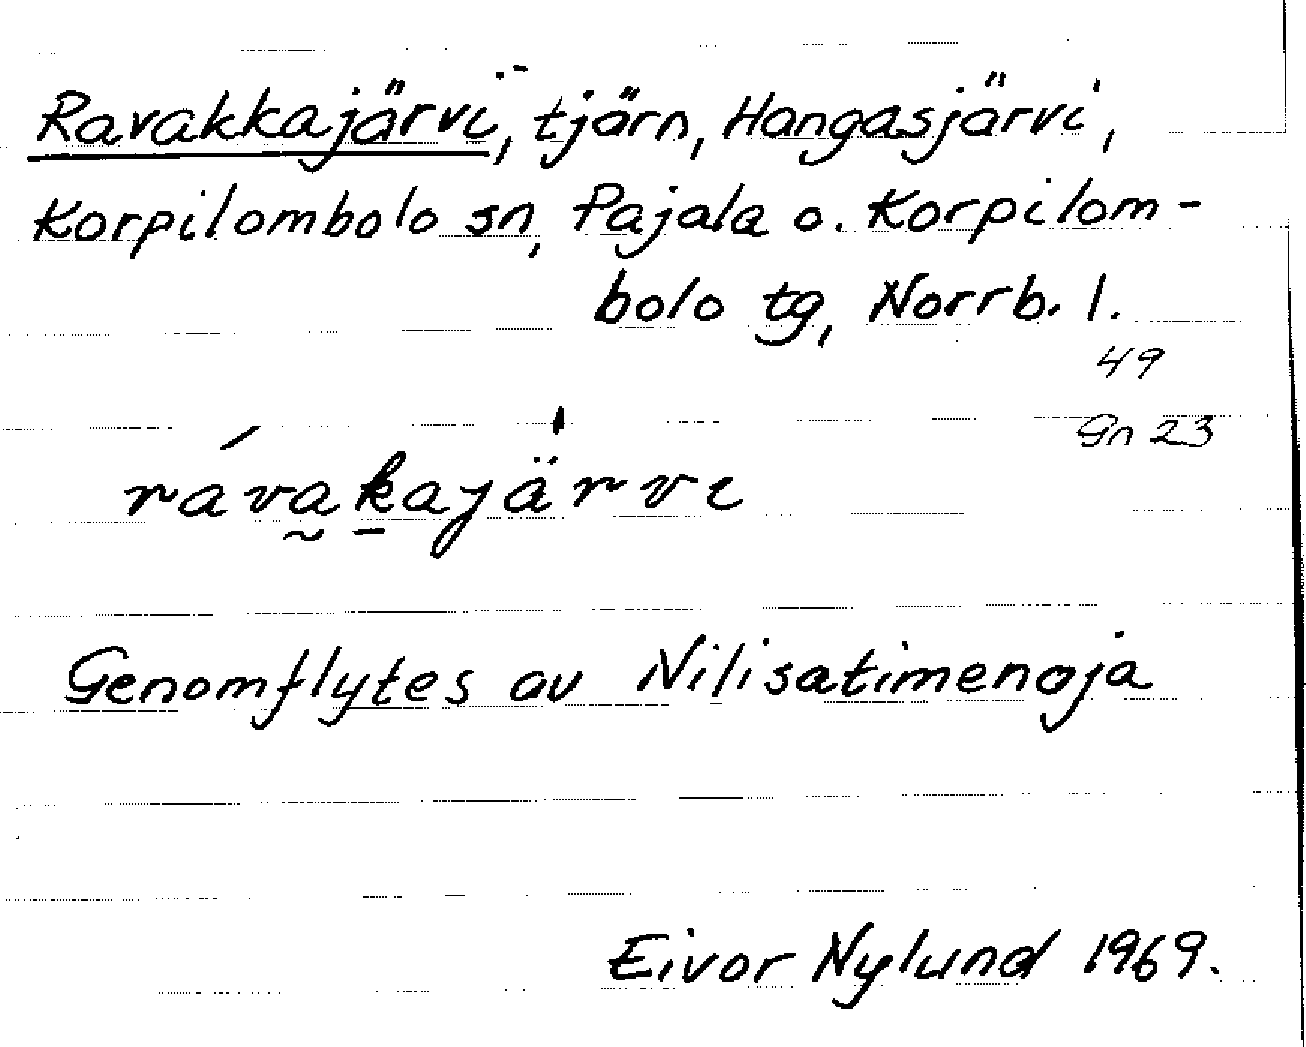 Ravakkajärvi, tjärn, Hangasjärvi,
Korpilombolo sn, Pajala o. Korpilom-
bolo tg, Norrb. l.
49
Gn 23
ráva̰ḵajä̍rvi
Genomflytes av Nilisatimenoja
Eivor Nylund 1969.